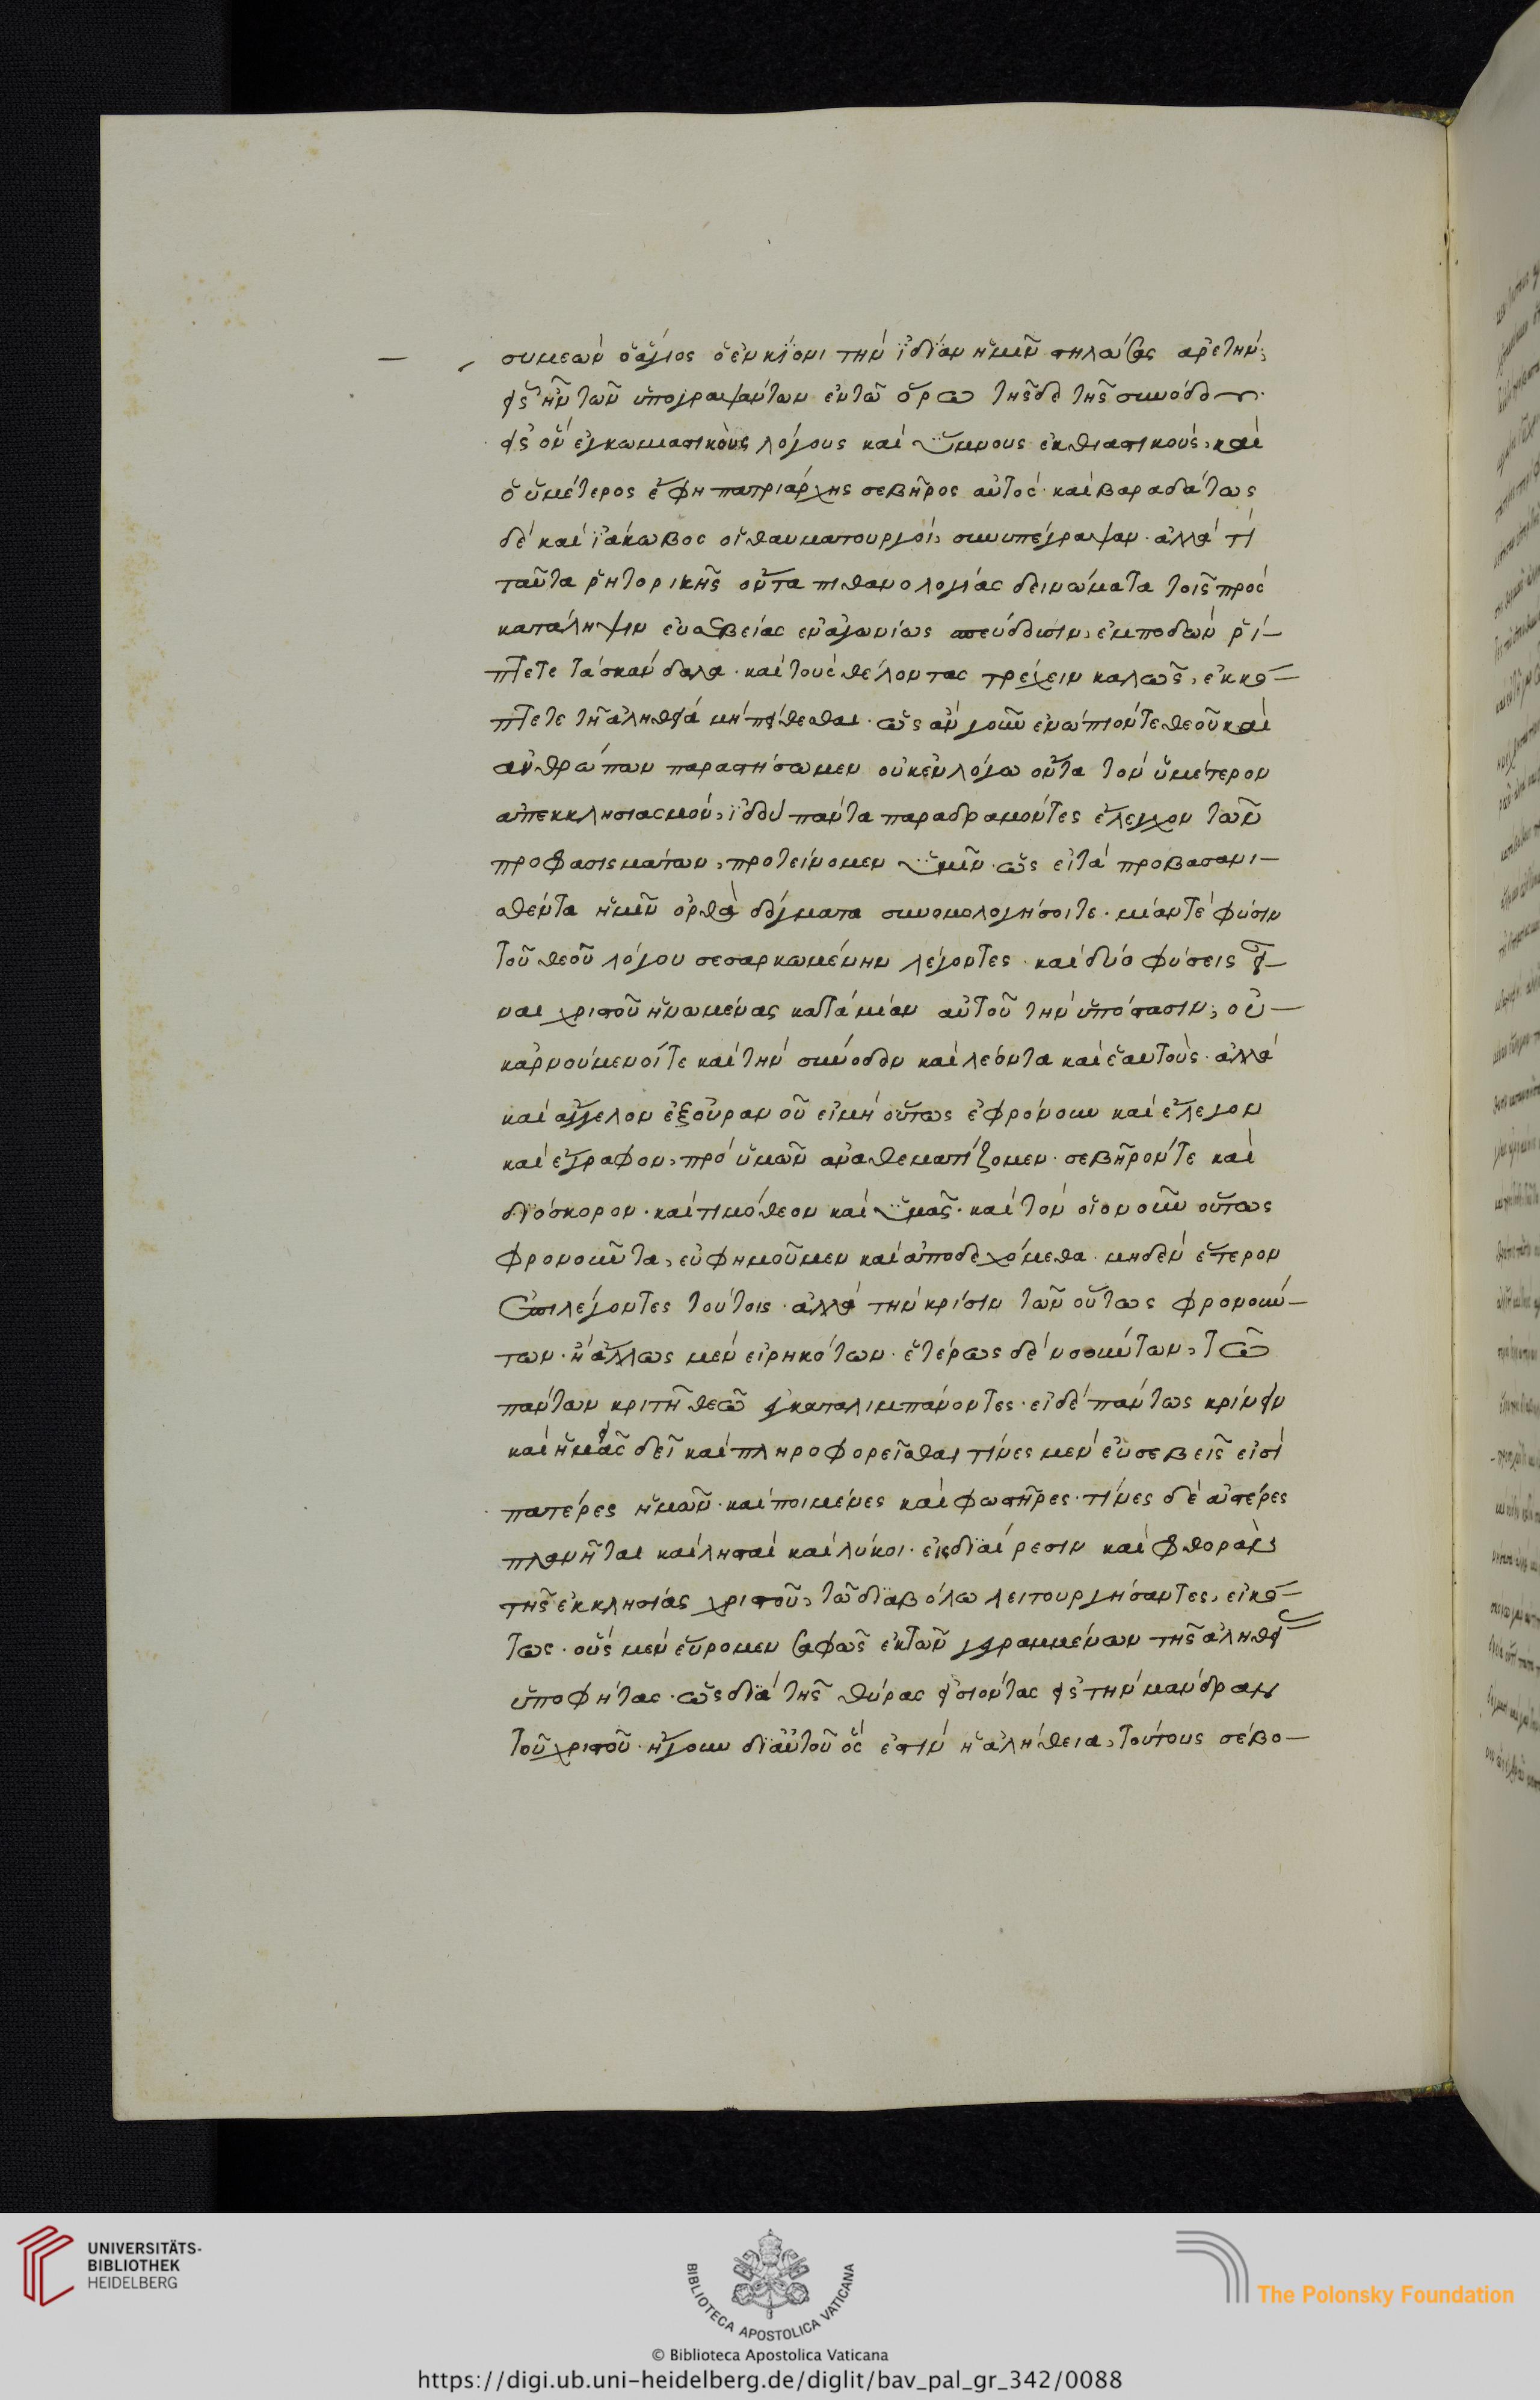 συμεών ὁ ἅγιος ὁ ἐν κίονι τὴν ἰδίαν ἡμῖν στηλώσας ἀρετήν;
εἷς ἦν τῶν ὑπογραψάντων ἐν τῶ ὅρω τῆσδε τῆς συνόδου·
εἰς ὃν ἐγκωμιαστικοὺς λόγους καὶ ὕμνους ἐκθειαστικοὺς, καὶ
ὁ ὑμέτερος ἔφη πατριάρχης σεβῆρος αὐτός· καὶ βαραδάτως
δὲ καὶ ἰάκωβος οἱ θαυματουργοὶ, συνυπέγραψαν· ἀλλὰ τί
ταῦτα ῥητορικῆς ὄντα πιθανολογίας δεινώματα τοῖς πρὸς
κατάληψιν εὐσεβείας ἐναγωνίως σπεύδουσιν, ἐμποδὼν ῥί-
πτετε τὰ σκάνδαλα· καὶ τοὺς θέλοντας τρέχειν καλῶς, ἐκκό-
πτετε τῆ ἀληθεία μὴ πείθεσθαι· ὡς ἂν γοῦν ἐνώπιόν τε θεοῦ καὶ
ἀνθρώπων παραστήσωμεν οὐκ ἐν λόγω ὄντα τὸν ὑμέτερον
ἀπεκκλησιασμόν, ἰδοὺ πάντα παραδραμόντες ἔλεγχον τῶν
προφασισμάτων, προτείνομεν ὑμῖν· ὡς εἰ τὰ προβασανι-
σθέντα ἡμῖν ὀρθὰ δόγματα συνομολογήσοιτε· μίαν τὲ φύσιν
τοῦ θεοῦ λόγου σεσαρκωμένην λέγοντες· καὶ δύο φύσεις εἶ-
ναι χριστοῦ ἡνωμένας κατὰ μίαν αὐτοῦ τὴν ὑπόστασιν; οὐ-
κ ἀρνούμενοί τε καὶ τὴν σύνοδον καὶ λέοντα καὶ ἑαυτούς· ἀλλὰ
καὶ ἄγγελον ἐξ οὐρανοῦ εἰ μὴ οὕτως ἐφρόνουν καὶ ἔλεγον
καὶ ἔγραφον, πρὸ ὑμῶν ἀναθεματίζομεν· σεβῆρόν τε καὶ
διόσκορον· καὶ τιμόθεον καὶ ὑμᾶς· καὶ τὸν οἱονοῦν οὕτως
φρονοῦντα, εὐφημοῦμεν καὶ ἀποδεχόμεθα· μηδὲν ἕτερον
ἐπιλέγοντες τούτοις· ἀλλὰ τὴν κρίσιν τῶν οὕτως φρονούν-
των· ἢ ἄλλως μὲν εἰρηκότων· ἑτέρως δὲ νοούντων, τῶ
πάντων κριτῆ θεῶ ἐγκαταλιμπάνοντες· εἰ δὲ πάντως κρίνειν
καὶ ἡμᾶς δεῖ καὶ πληροφορεῖσθαι τίνες μὲν εὐσεβεῖς εἰσὶ
πατέρες ἡμῶν· καὶ ποιμένες καὶ φωστῆρες· τίνες δὲ ἀστέρες
πλανῆται καὶ λησταὶ καὶ λύκοι· εἰς διαίρεσιν καὶ φθορὰν
τῆς ἐκκλησίας χριστοῦ, τῶ διαβόλω λειτουργήσαντες, εἰκό-
τως· οὓς μὲν εὕρομεν σαφῶς ἐκ τῶν γεγραμμένων τῆς ἀληθεί
ὑποφήτας· ὡς διὰ τῆς θύρας εἰσιόντας εἰς τὴν μάνδραν
τοῦ χριστοῦ· ἤγουν δι' αὐτοῦ ὅς ἐστιν ἡ ἀλήθεια, τούτους σέβο-
UNIVERSITÄTS-
BIBLIOTHEK
HEIDELBERG
BIBLIOTECA APOSTOLICA VATICANA
The Polonsky Foundation
© Biblioteca Apostolica Vaticana
https://digi.ub.uni-heidelberg.de/diglit/bav_pal_gr_342/0088